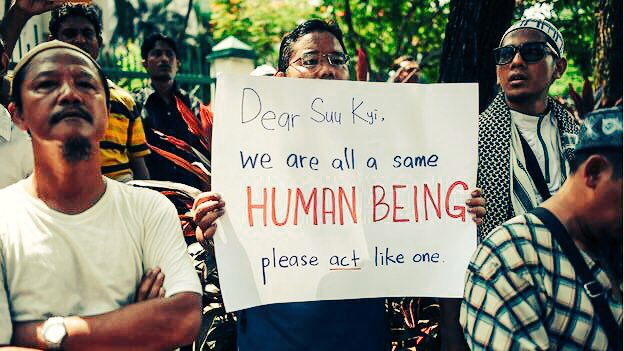 Dear Suu Kyi,
we are all a same
HUMAN BEING
please act like one.